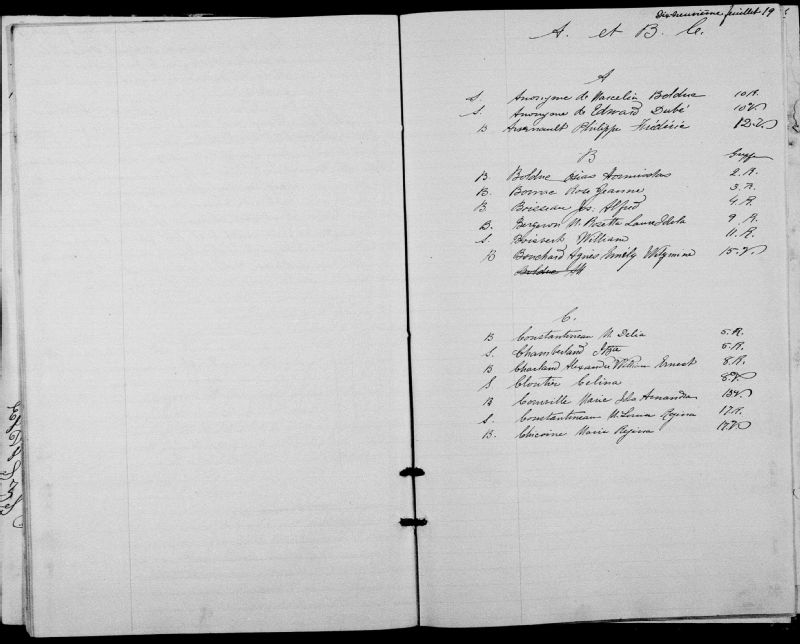 Dixneuvième feuillet 19
A. et B. C.
A
S. Anonyme de Marcelin Bolduc 10 R.
S. Anonyme de Edward Dubé 10 V
B Arsenault Philippe Frédéric 12. V.
B
B. Bolduc Osias Hormisdas 2. R.
B. Rose Jeanne 3. R.
B Boisseau Jos. Alfred 4. R.
B. Bergeron M. Rosetta Laura 9. R.
S. Boisvert William 11. R.
B Bouchard Agnes 15. V.
Bolduc M
C.
B Constantineau M. Delia 5. R.
S. Chamberland 5. R.
B Charland Alexandre William Ernest 8. R.
S Cloutier Celina 8. V.
B Courville Marie 13 V.
S. Constantineau M. Regina 17. R.
B. Chicoine Maria Regina 17 V